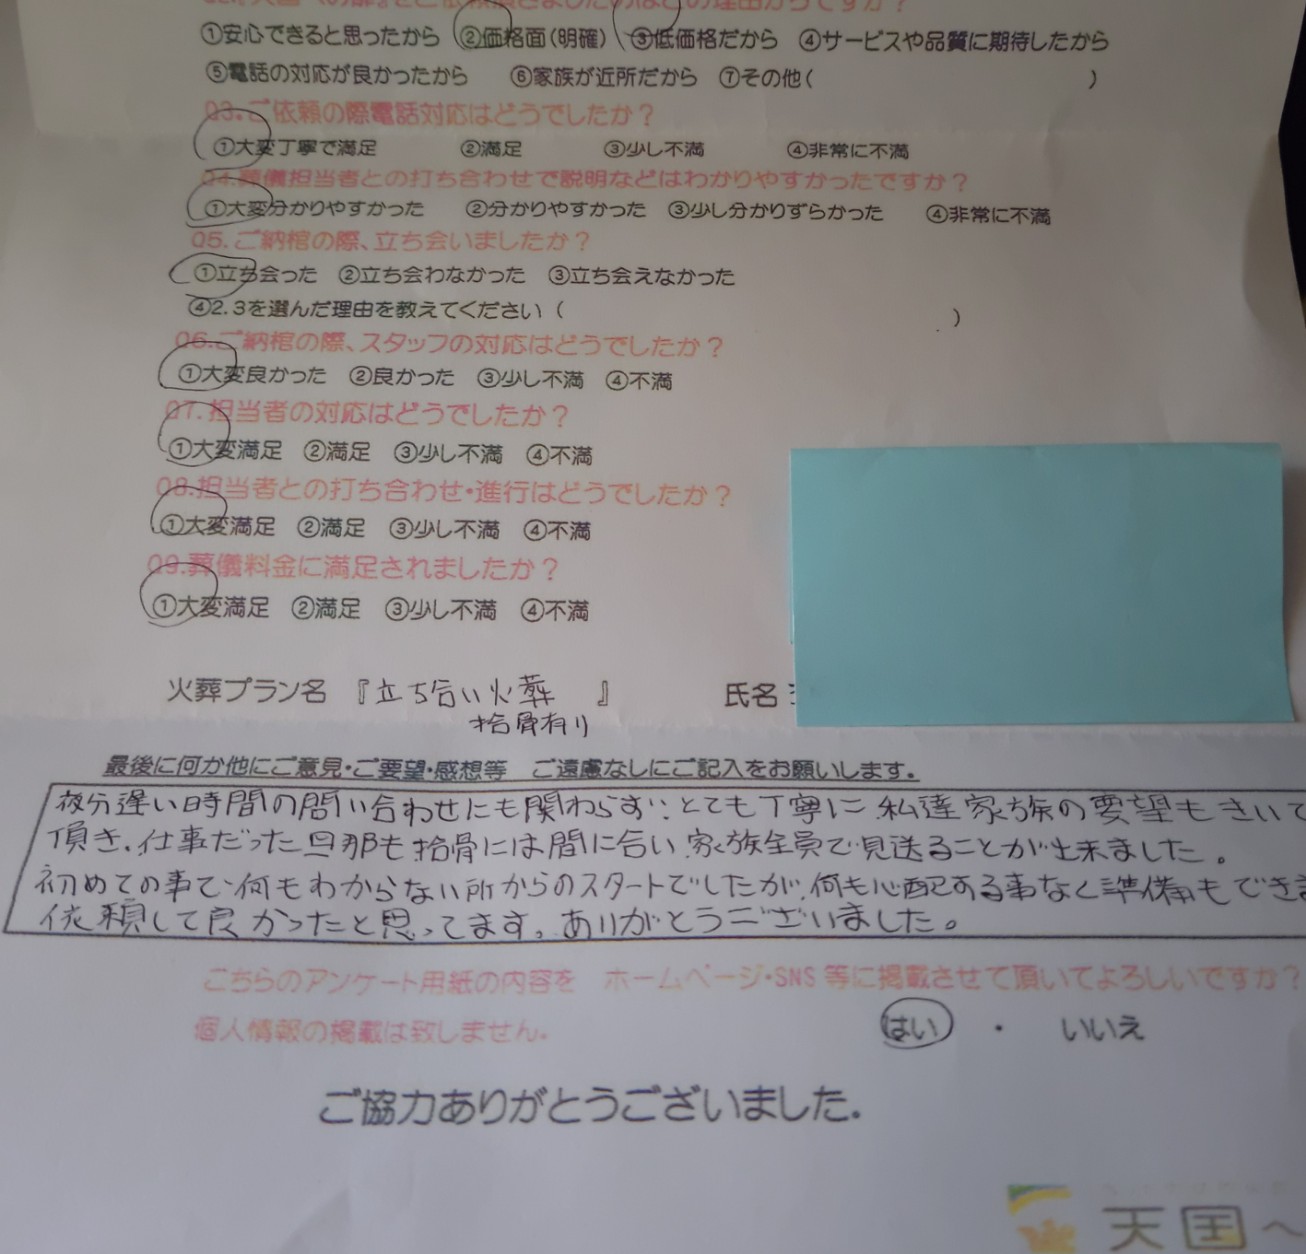 ①安心できると思ったから ②価格面(明確) ③低価格だから ④サービスや品質に期待したから
⑤電話の対応が良かったから ⑥家族が近所だから ⑦その他( )
Q3.ご依頼の際電話対応はどうでしたか?
①大変丁寧で満足 ②満足 ③少し不満 ④非常に不満
Q4.葬儀担当者との打ち合わせで説明などはわかりやすかったですか?
①大変分かりやすかった ②分かりやすかった ③少し分かりずらかった ④非常に不満
Q5.ご納棺の際、立ち会いましたか?
①立ち会った ②立ち会わなかった ③立ち会えなかった
④2.3を選んだ理由を教えてください( )
Q6.ご納棺の際、スタッフの対応はどうでしたか?
①大変良かった ②良かった ③少し不満 ④不満
Q7.担当者の対応はどうでしたか?
①大変満足 ②満足 ③少し不満 ④不満
Q8.担当者との打ち合わせ・進行はどうでしたか?
①大変満足 ②満足 ③少し不満 ④不満
Q9.葬儀料金に満足されましたか?
①大変満足 ②満足 ③少し不満 ④不満
火葬プラン名 『立ち合い火葬 』 氏名
拾骨有り
最後に何か他にご意見・ご要望・感想等 ご遠慮なしにご記入をお願いします。
夜分遅い時間の問い合わせにも関わらず、とても丁寧に 私達家族の要望もきいて
頂き、仕事だった旦那も拾骨には間に合い、家族全員で見送ることが出来ました。
初めての事で何もわからない所からのスタートでしたが、何も心配する事なく準備もでき
依頼して良かったと思ってます。ありがとうございました。
こちらのアンケート用紙の内容を ホームページ・SNS等に掲載させて頂いてよろしいですか?
個人情報の掲載は致しません。 はい ・ いいえ
ご協力ありがとうございました.
天国へ